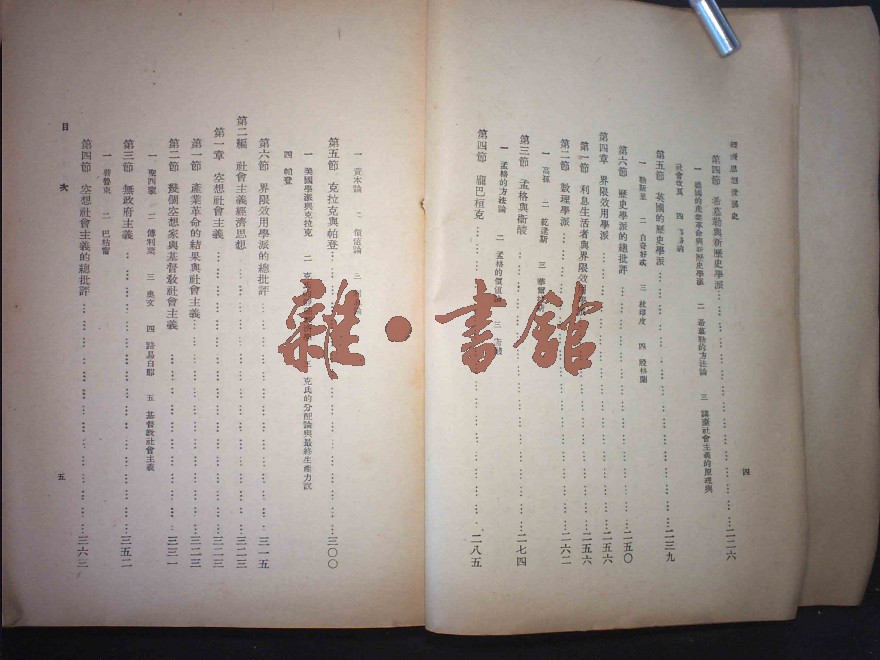 經濟思想發展史
第四節 希慕勒與新歷史學派 二二六
一 德國的產業革命與新歷史學派 二 希慕勒的方法論 三 講壇社會主義的原理與
社會改良 四
第五節 英國的歷史學派 二三九
一 勒斯里 二 白奇好忒 三 杜印度 四 殷格蘭
第六節 歷史學派的總批評 二五〇
第四章 界限效用學派 二五六
第一節 利息生活者與界限效用學派 二五六
第二節 數理學派 二六二
一 高孫 二 乾逢斯 三
第三節 孟格與衞賧 二七四
一 孟格的方法論 二 孟格的價值論 三
第四節 龐巴桓克 二八五
四
一 資本論 二 價值論 三
第五節 克拉克與帕登 三〇〇
一 美國學派與克拉克 二 克氏的分配論與最終生產力說
四 帕登
第六節 界限效用學派的總批評 三一五
第二編 社會主義經濟思想 三二三
第一章 空想社會主義 三二三
第一節 產業革命的結果與社會主義 三二三
第二節 幾個空想家與基督敎社會主義 三三一
一 聖西蒙 二 傅利葉 三 奧文 四 路易白郎 五 基督敎社會主義
第三節 無政府主義 三五二
一 普魯東 二 巴枯甯
第四節 空想社會主義的總批評 三六三
目次
五
雜·書館